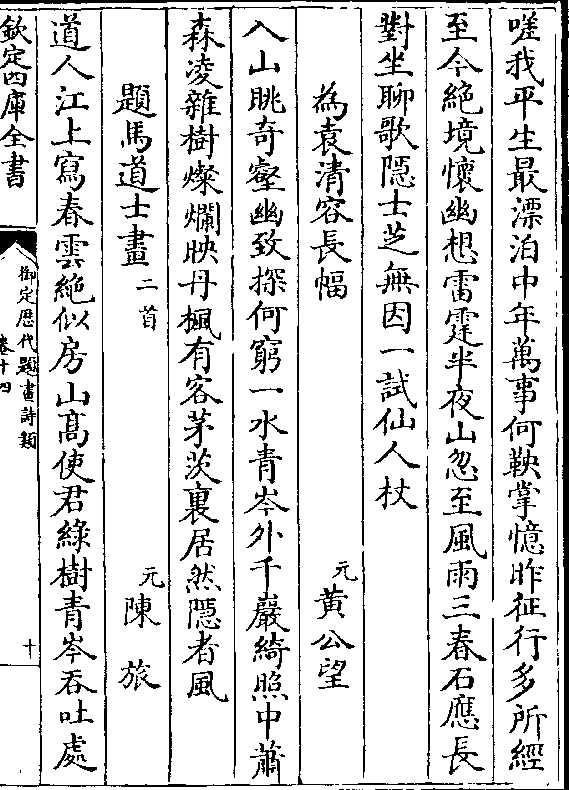 嗟我平生最漂泊中年萬事何鞅掌憶昨征行多所經
至今絶境懷幽想雷霆半夜山忽至風雨三春石應長
對坐聊歌隱士芝無因一試仙人杖
為袁清容長幅 元 黄公望
入山眺奇壑幽致探何窮一水青岑外千巖綺照中蕭
森凌雜樹燦爛映丹楓有客茅茨裏居然隱者風
題馬道士畫 二首 元 陳旅
道人江上寫春雲絶似房山髙使君綠樹青岑吞吐處
欽定四庫全書
御定歴代題畫詩類
卷十四
十